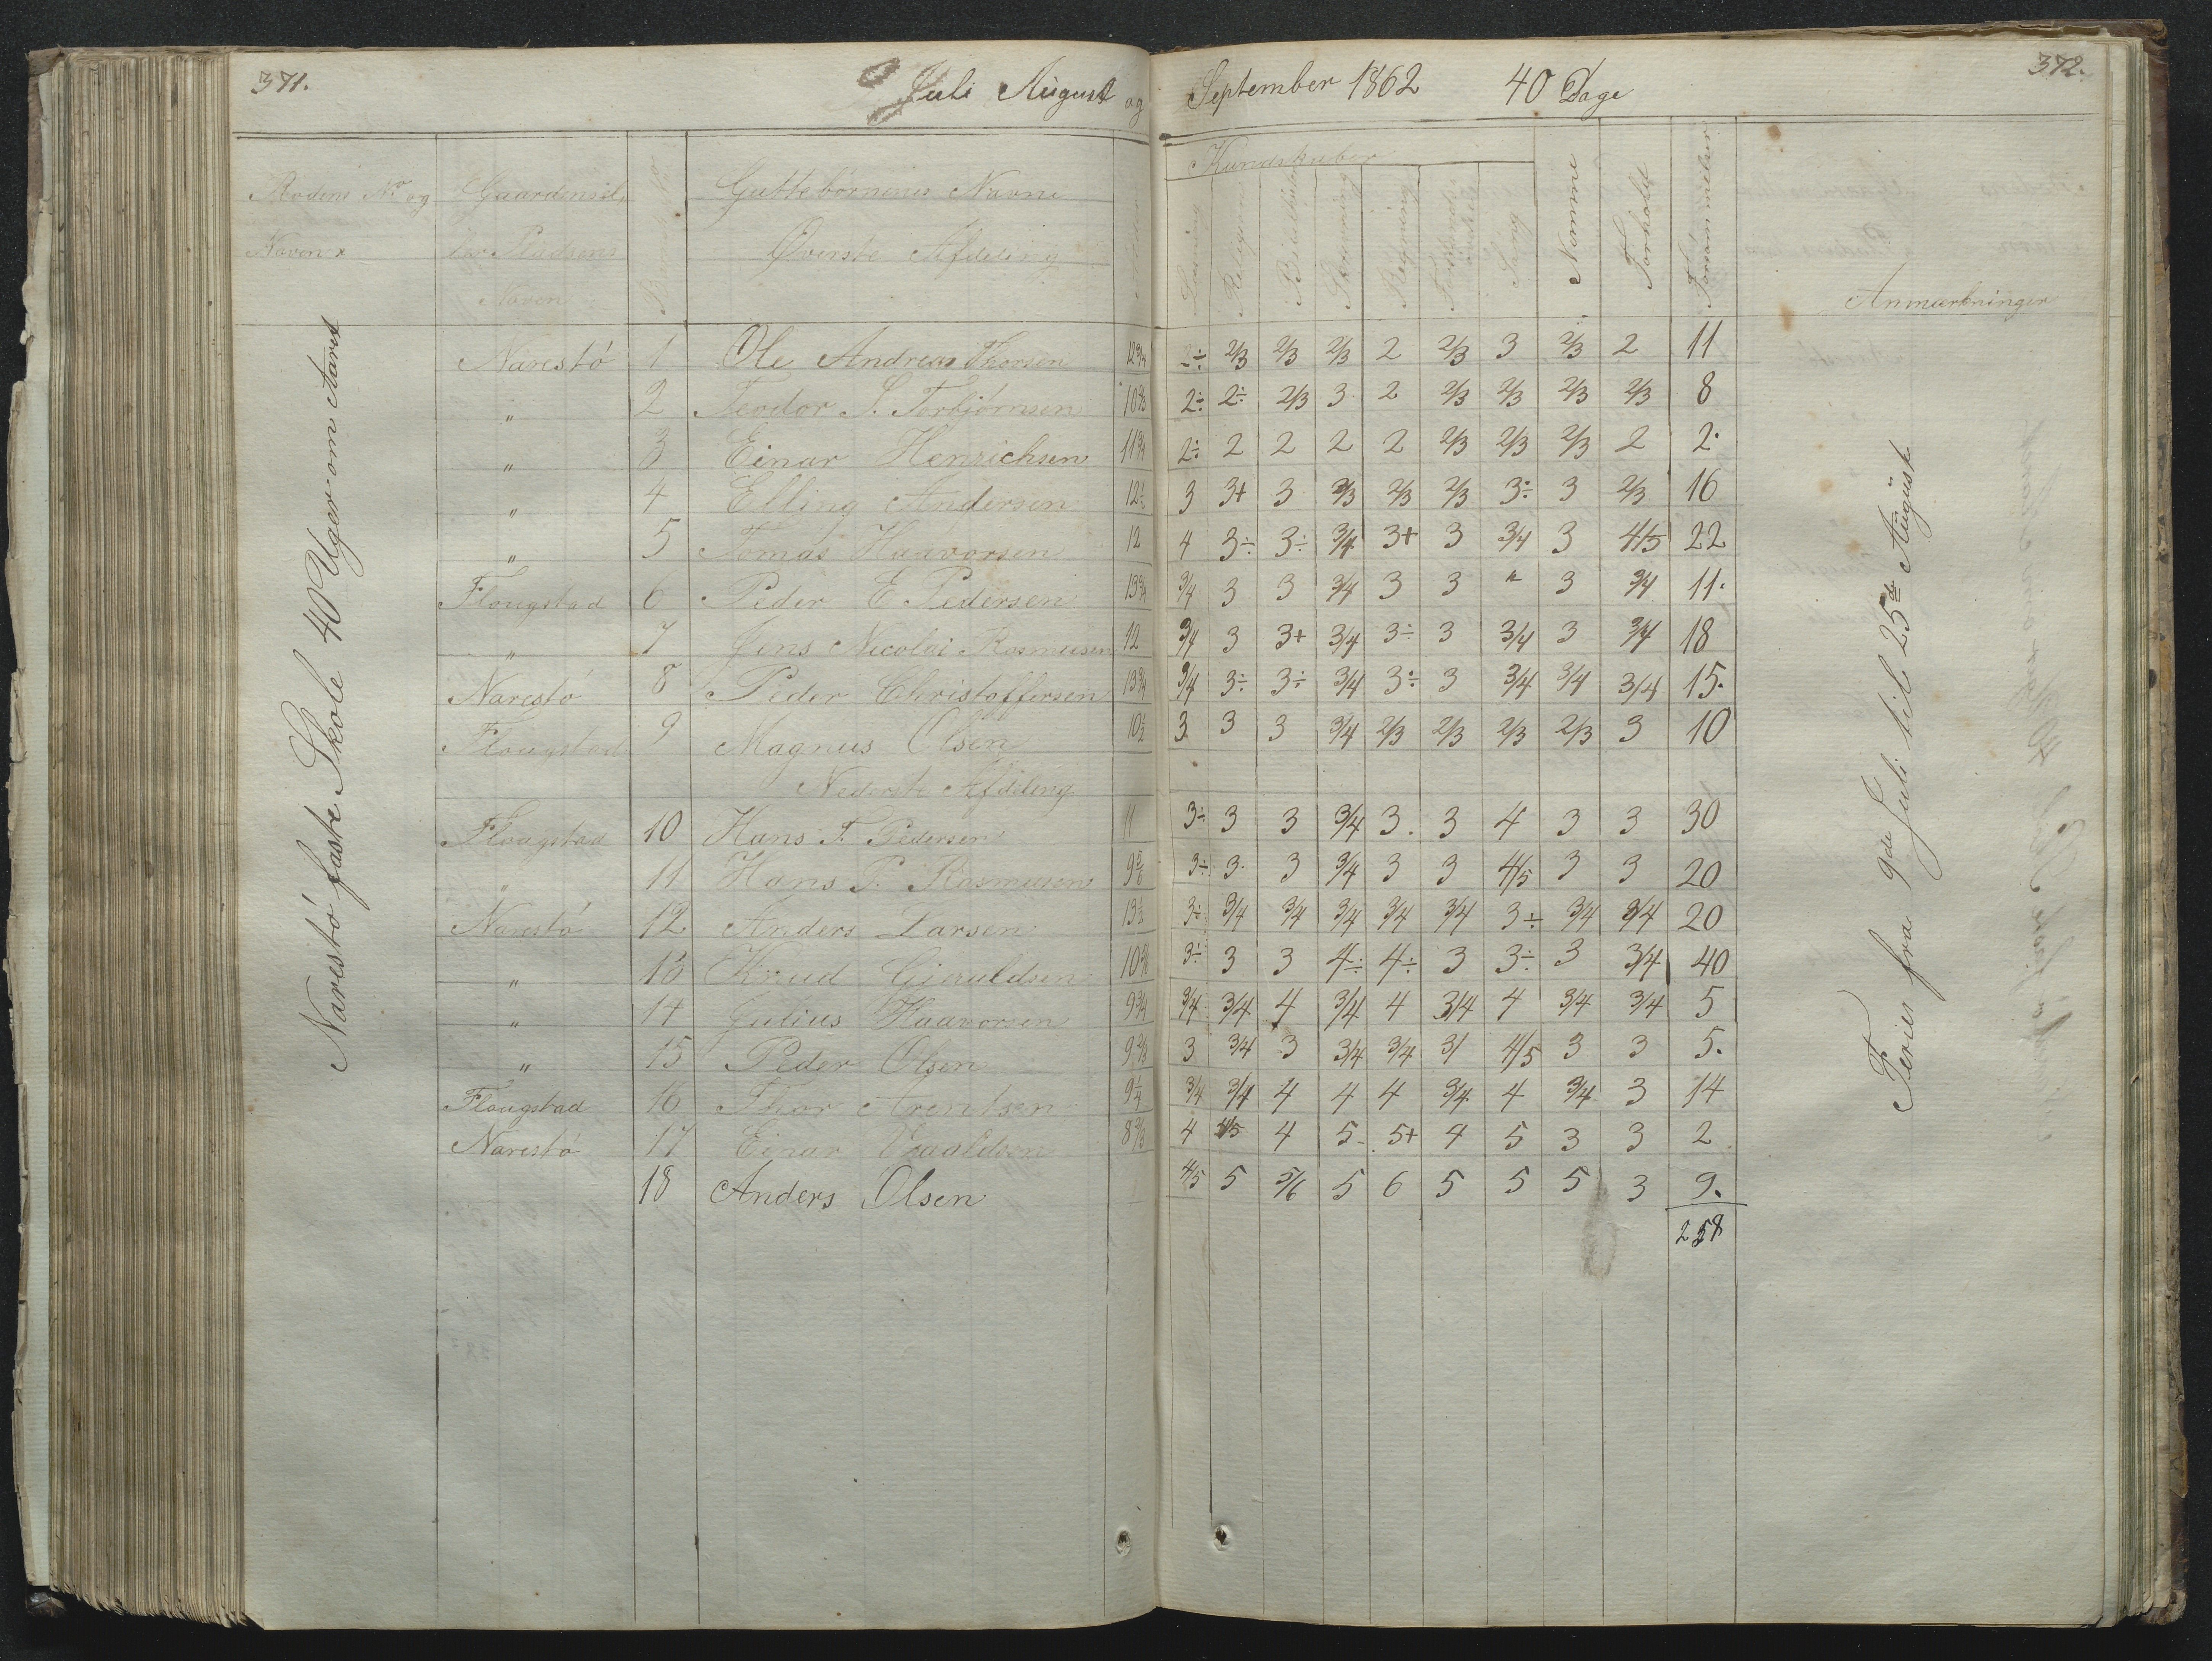 371.
Juli August og September 1862 40 Dage
372.
Rodens No. og Navn
Gaardens el. Pladsens Navn
Guttebørnenes Navne
Øverste Afdeling
Kundskaber
Læsning
Religion
Skrivning
Regning
Sang
Nomine
Forhold
Forsømmelser
Anmærkninger
Narestö faste Skole 40 Uger om Aaret
Narestö 1 Ole Andreas Thorsen 12 3/4 2/3 2/3 2/3 2 2/3 3 2/3 2 11
" 2 Teodor S. Torbjørnsen 10 2/3 2÷ 2÷ 2/3 3 2 2/3 2/3 2/3 2/3 8
" 3 Einar Henrichsen 11 3/4 2÷ 2 2 2 2 2/3 2/3 2/3 2 2.
" 4 Elling Andersen 12 1/2 3 3+ 3 2/3 2/3 2/3 3÷ 3 2/3 16
" 5 Tomas Haavorsen 12 4 3÷ 3÷ 3/4 3+ 3 3/4 3 4/5 22
Flougstad 6 Peder E Pedersen 13 3/4 3/4 3 3 3/4 3 3 " 3 3/4 11.
" 7 Jens Nicolai Rasmusen 12 3/4 3 3+ 3/4 3÷ 3 3/4 3 3/4 18
Narestö 8 Peder Christoffersen 13 3/4 3/4 3÷ 3÷ 3/4 3÷ 3 3/4 3/4 3/4 15.
Flougstad 9 Magnus Olsen 10 1/2 3 3 3 3/4 2/3 2/3 2/3 2/3 3 10
Nederste Afdeling
Flougstad 10 Hans T. Pedersen 11 3÷ 3 3 3/4 3. 3 4 3 3 30
" 11 Hans P. Rasmusen 9 5/6 3÷ 3 3 3/4 3 3 4/5 3 3 20
Narestö 12 Anders Larsen 13 1/2 3÷ 3/4 3/4 3/4 3/4 3/4 3÷ 3/4 3/4 20
" 13 Knud Gjeruldsen 10 3÷ 3 3 4÷ 4÷ 3 3÷ 3 3/4 40
" 14 Julius Haavorsen 9 3/4 3/4 3/4 4 3/4 4 3/4 4 3/4 3/4 5
" 15 Peder Olsen 9 2/3 3 3/4 3 3/4 3/4 3/ 4/5 3 3 5.
Flougstad 16 Thor Arentsen 9 1/4 3/4 3/4 4 4 4 3/4 4 3/4 3 14
Narestö 17 Einar 8 2/3 4 4/5 4 5- 5+ 4 5 3 3 2
18 Anders Olsen 4/5 5 5/6 5 6 5 5 5 3 9.
258
Ferier fra 9de Juli til 25de August